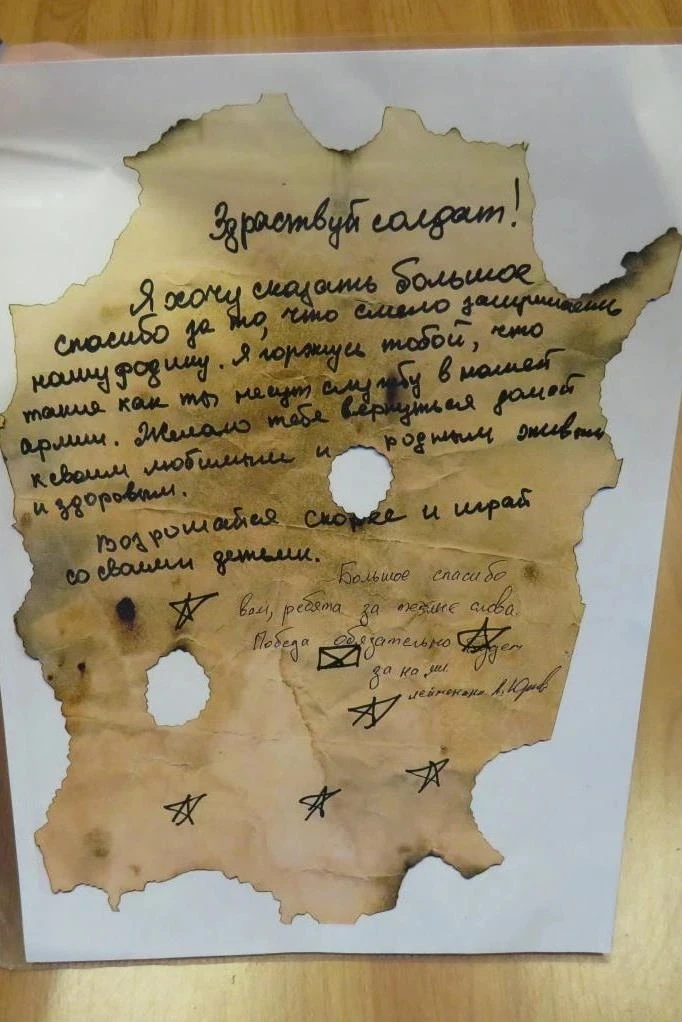 Здраствуй солдат!
Я хочу сказать большое
спасибо за то, что смело защищаешь
нашу родину. Я горжусь тобой, что
такие как ты несут службу в нашей
армии. Желаю тебе вернуться домой
к своим любимым и родным живым
и здоровым.
Возрошайся скорее и играй
со своими детьми.
Большое спасибо
вам, ребята за теплые слова.
Победа обязательно будет
за нами.
лейтенант А.